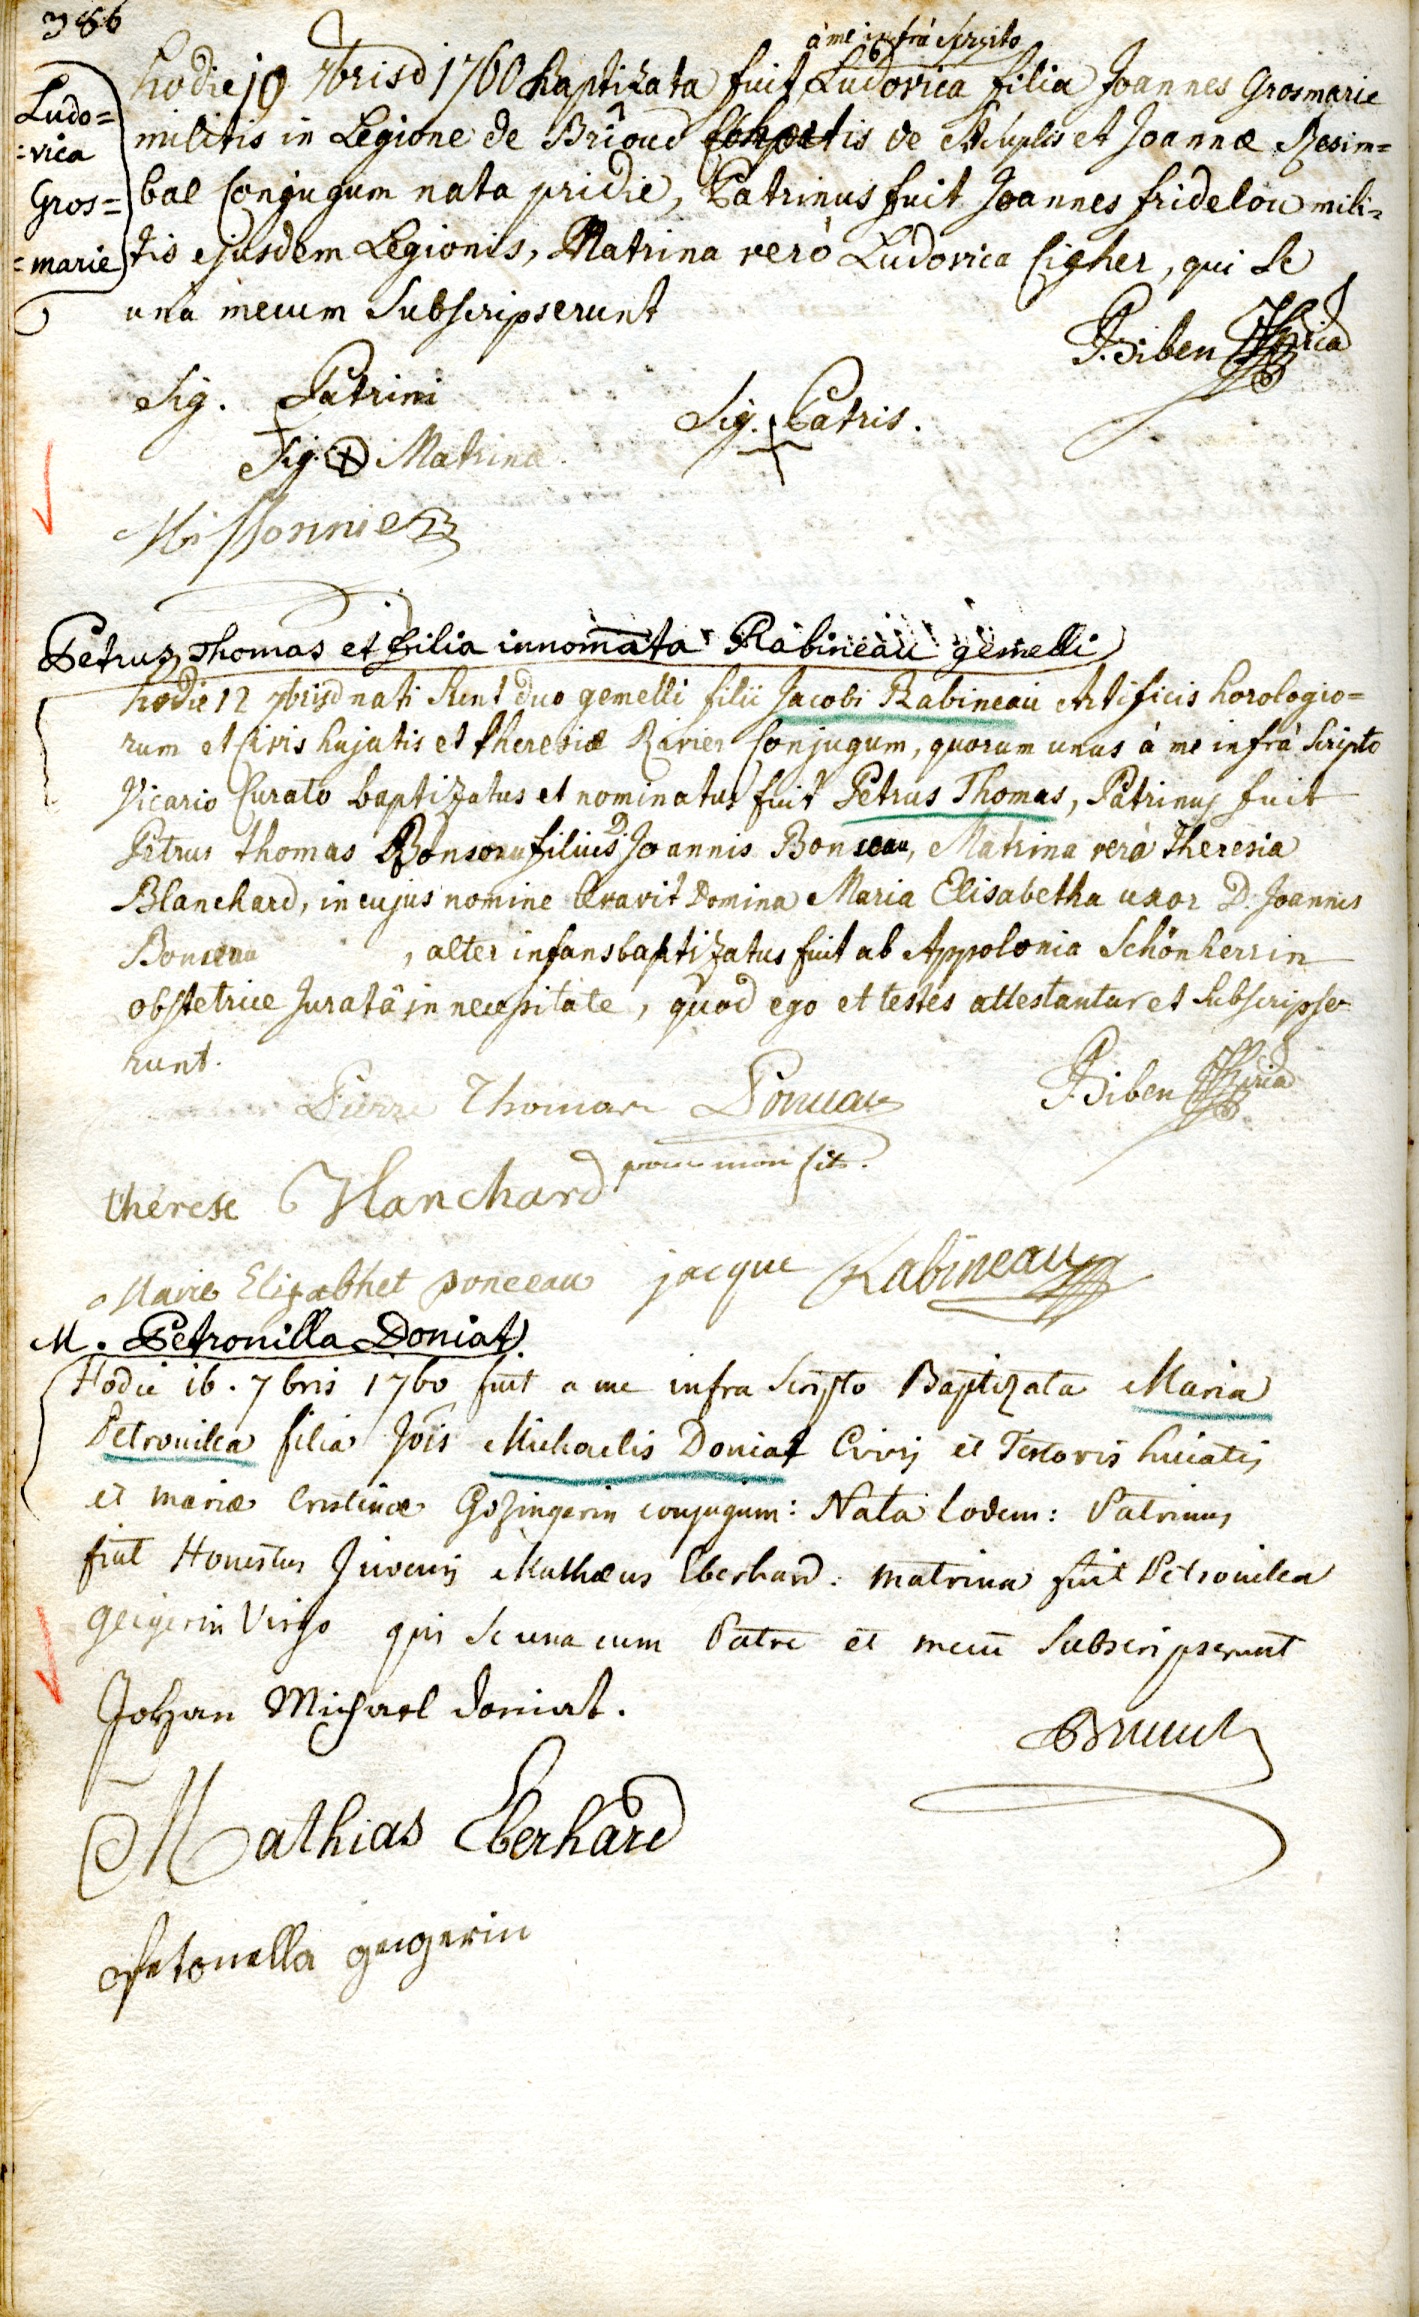 386
Ludo=
=vica
Gros=
=marie
à me infrà scripto
hodie 10 7bris 1760 baptizata fuit Ludovica filia Joannes Grosmarie
militis in Legione de et Joannæ
bal Conjugum nata pridie, Patrinus fuit Joannes fridelou mili=
tis ejusdem Legionis, Matrina verò Ludovica Cigher, qui se
una mecum Subscripserunt
F. Biben
Sig. Patrini
Sig. Patris.
Sig. Matrina
Petrus Thomas et filia innomata Rabineau gemelli
hodie 12 7bris nati sunt duo gemelli filii Jacobi Rabineau Artificis horologio=
rum et Civis hujatis et theresiæ Rivier Conjugum, quorum unus à me infrà Scripto
Vicario Curato baptizatus et nominatus fuit Petrus Thomas, Patrinus fuit
Petrus thomas filius D. Joannis Matrina verà theresia
Blanchard, in cujus nomine levavit Domina Maria Elisabetha uxor D. Joannis
, alter infans baptizatus fuit ab Appolonia Schönherrin
obstetrice Juratâ in necessitate, quod ego et testes attestantur et Subscripse-
runt.
Pierre Thomas
F. Biben
pour mon fils.
thérese Blanchard
Marie Elizabhet ponceau jacque Rabineau
M. Petronilla Doniat.
Hodie 16. 7bris 1760 fuit a me infra Scripto Baptizata Maria
Petronilla filia Jois Michaelis Doniat Civis et Textoris huiatis
et mariæ Cristinæ conjugum: Nata Eodem: Patrinus
fuit Honestus Juvenis Mathæus Eberhard: matrina fuit Petronilla
geigerin Virgo qui se una cum Patre et mecum Subscripserunt
Johan Michael doniat.
Mathias Eberhard
Petonella geigerin